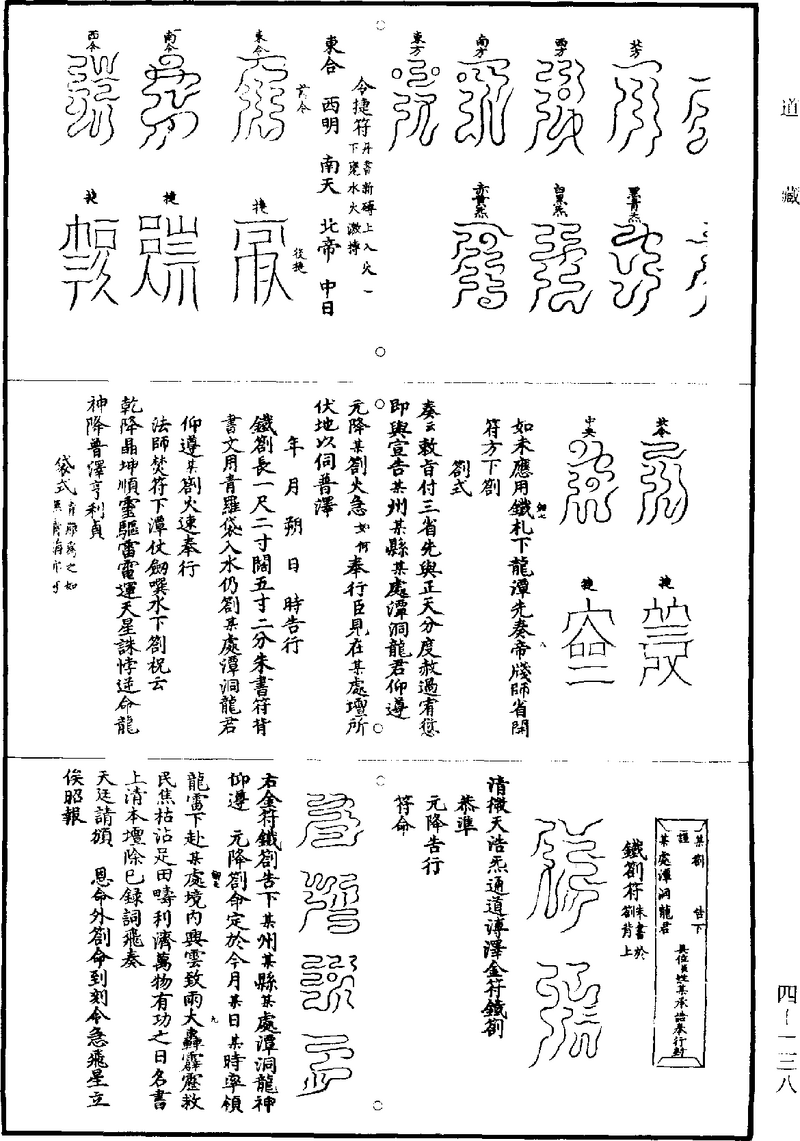 道藏
四—一三八
芳
西方
南方
東方
黑青炁
白黑炁
赤黄炁
令捷符丹書新磚上入火一下瓮水火激搏
東合　西明　南天　北帝　中日
前令
後捷
東令
捷
南令
捷
西令
捷
北令
捷
中央
捷
如未應用鐵札下龍潭先奏帝牋師省開
符方下劄
劄式
奏云敕旨付三省先與正天分度赦過宥愆
即與宣告某州某縣某處潭洞龍君仰遵
元降某劄火急如何奉行臣見在某處壇所
伏地以伺普澤
年　月　朔　日　時告行
鐵劄長一尺二寸闊五寸二分朱書符背
書文用青羅袋入水仍劄某處潭洞龍君
仰遵某劄火速奉行
法師焚符下潭仗劒噀水下劄祝云
乾降晶坤順靈驅雷電運天星誅悖逆命龍
神降普澤亨利貞
袋式
某劄　告下
謹
某處潭洞龍君
具位臣姓某承誥奉行封
鐵劄符朱書於劄背上
清微天浩炁通道溥澤金符鐵劄
恭準
元降告行
符命
右金符鐵劄告下某州某縣某處潭洞龍神
仰遵　元降劄命定於今月某日某時率領
龍雷下赴某處境内興雲致雨大轟霹靂救
民焦枯沾足田疇利濟萬物有功之日名書
上清本壇除已録詞飛奏
天廷請頒　恩命外劄命到刻令急飛星立
俟昭報